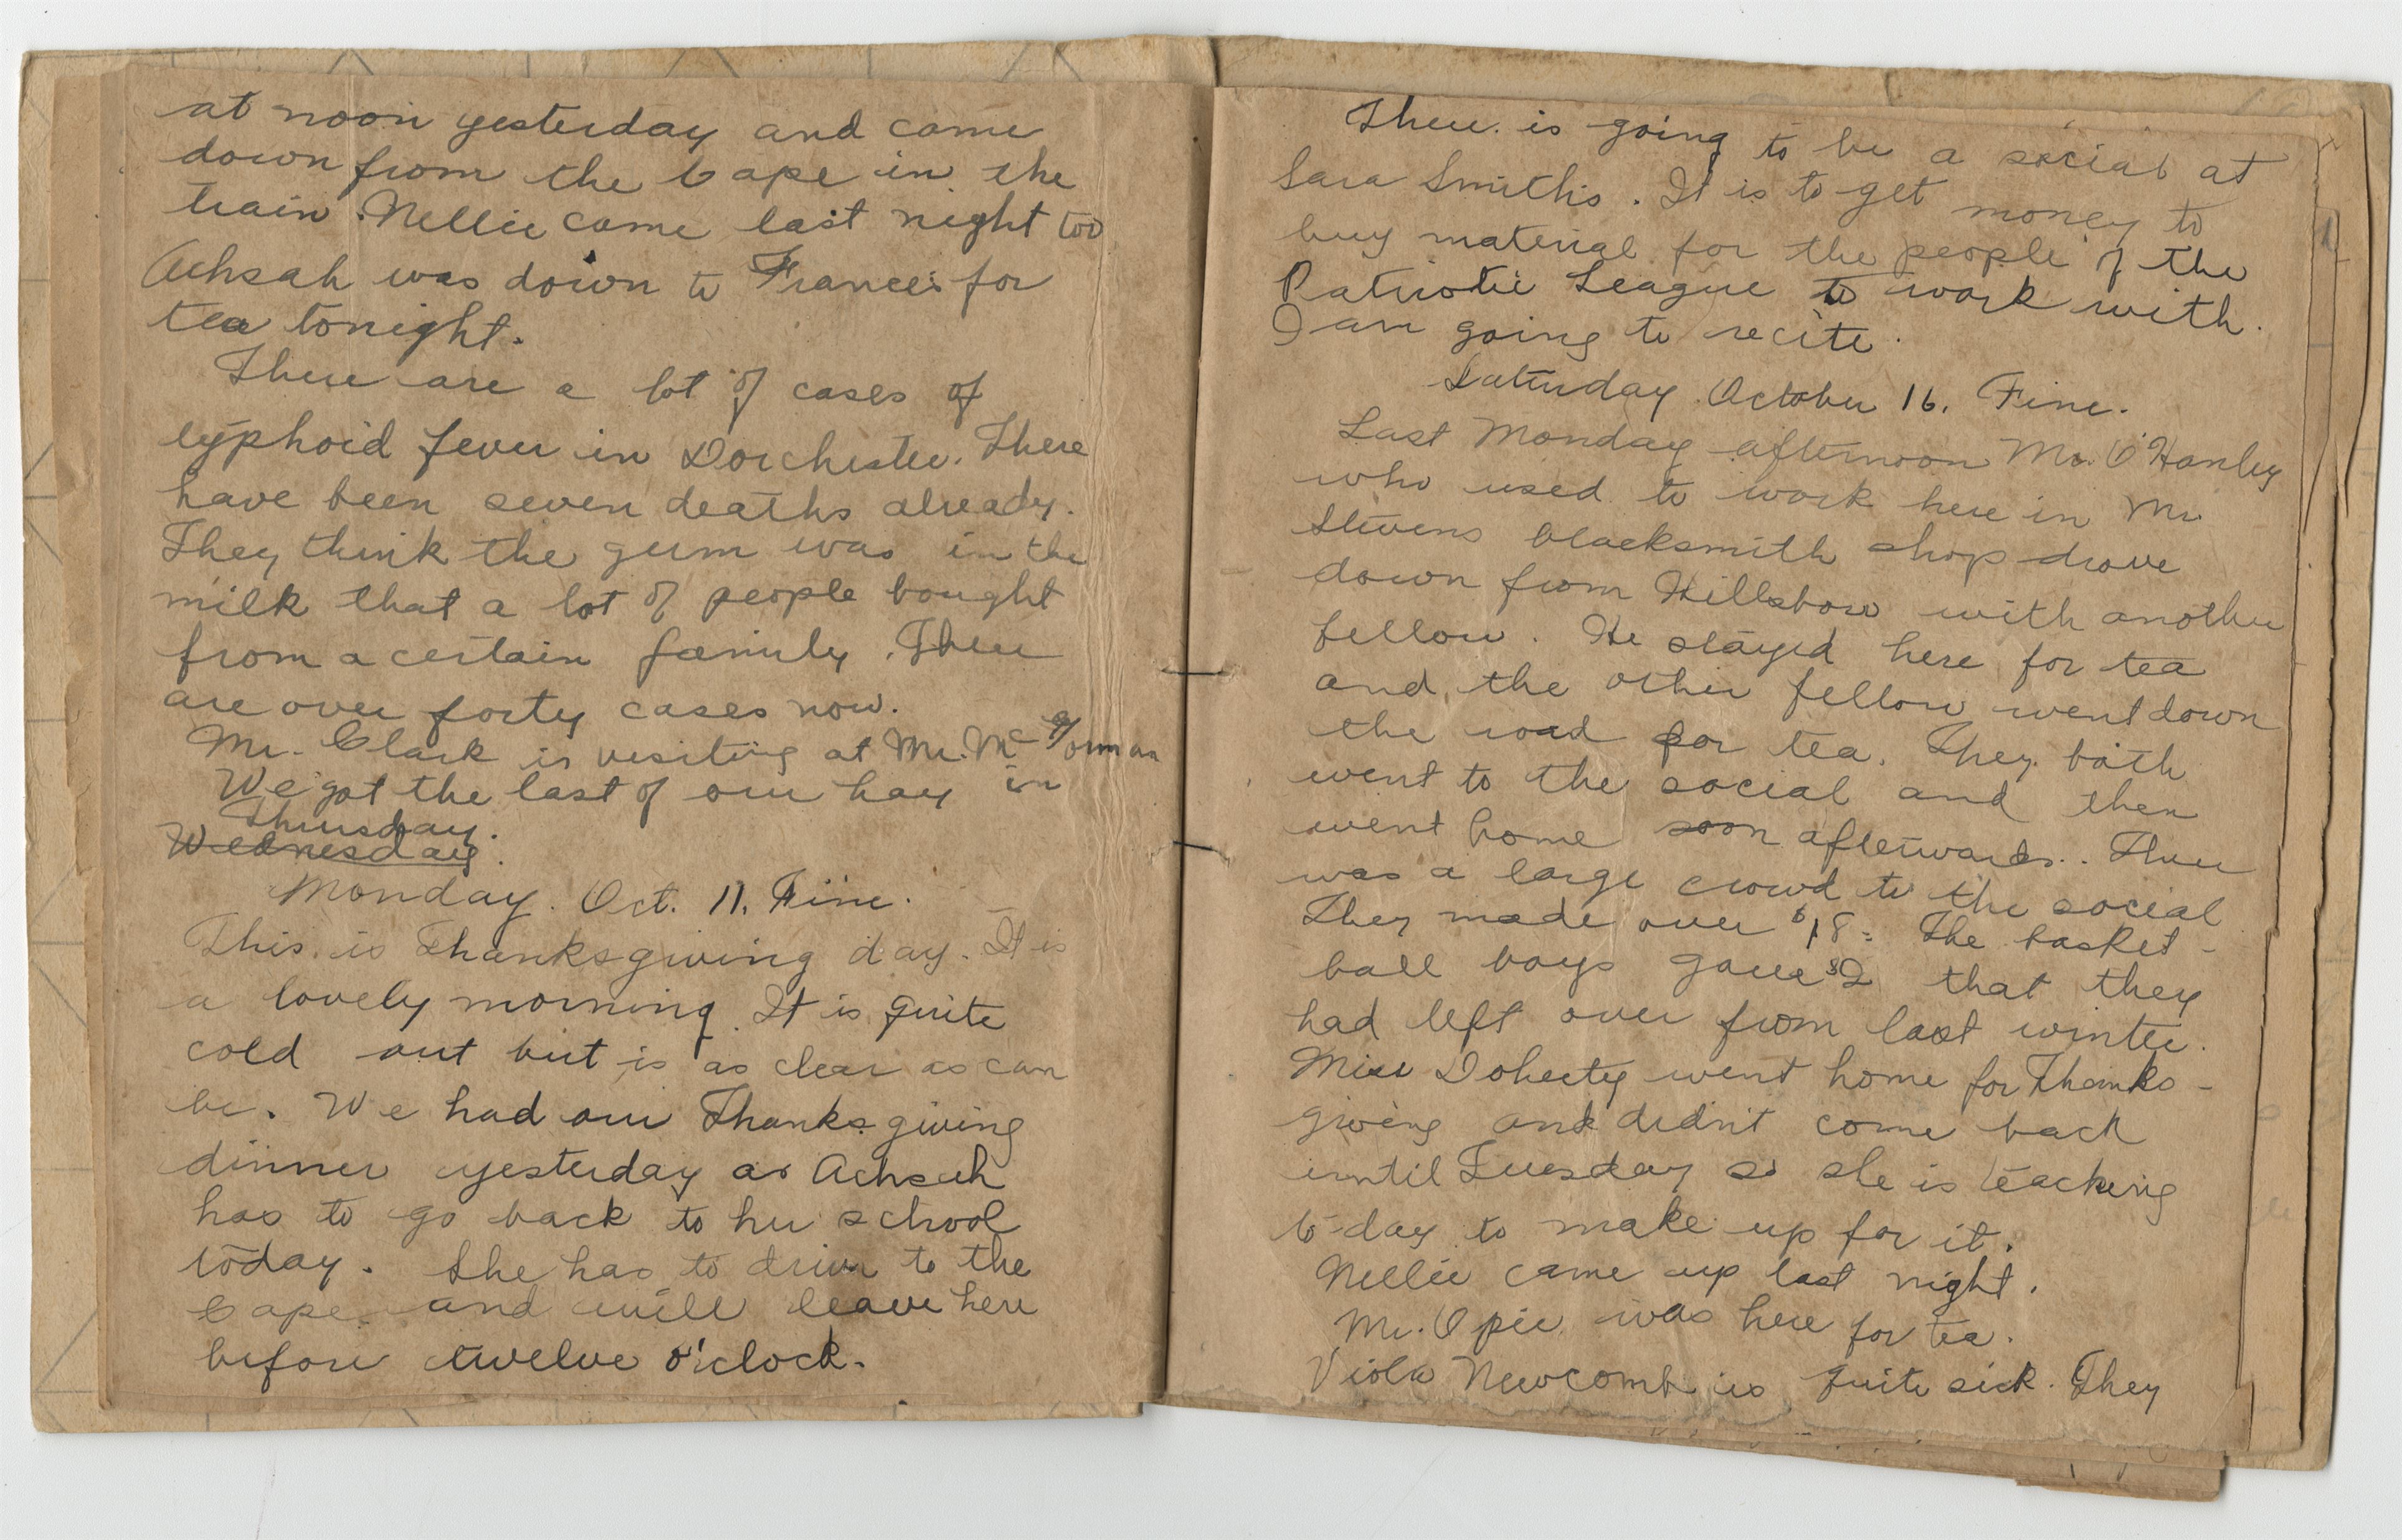 at noon yesterday and came
down from the Cape in the
train. Nellie came last night too
Achsah was down to Frances for
tea tonight.
There are a lot of cases of
typhoid fever in Dorchester. There
have been seven deaths already.
They think the germ was in the
milk that a lot of people bought
from a certain family. There
are over forty cases now.
Mr. Clark is visiting at Mr. McGorman
We got the last of our hay in
Thursday.
Wednesday.
Monday. Oct. 11. Fine.
This is Thanksgiving day. It is
a lovely morning. It is quite
cold out but is as clear as can
be. We had our Thanksgiving
dinner yesterday as Achsah
has to go back to her school
today. She has to drive to the
Cape and will leave here
before twelve o'clock.
There is going to be a social at
Sara Smiths. It is to get money to
buy material for the people of the
Patriotic League to work with.
I am going to recite.
Saturday October 16. Fine.
Last Monday afternoon Mr. O'Hanley
who used to work here in Mr
Stevens blacksmith shop drove
down from Hillsboro with another
fellow. He stayed here for tea
and the other fellow went down
the road for tea. They both
went to the social and then
went home soon afterwards. There
was a large crowd to the social
They made over $18. The basket-
ball boys gave $2 that they
had left over from last winter.
Miss Doherty went home for Thanks-
giving and didn't come back
until Tuesday so she is teaching
to-day to make up for it.
Nellie came up last night.
Mr. Opie was here for tea.
Viola Newcomb is quite sick. They